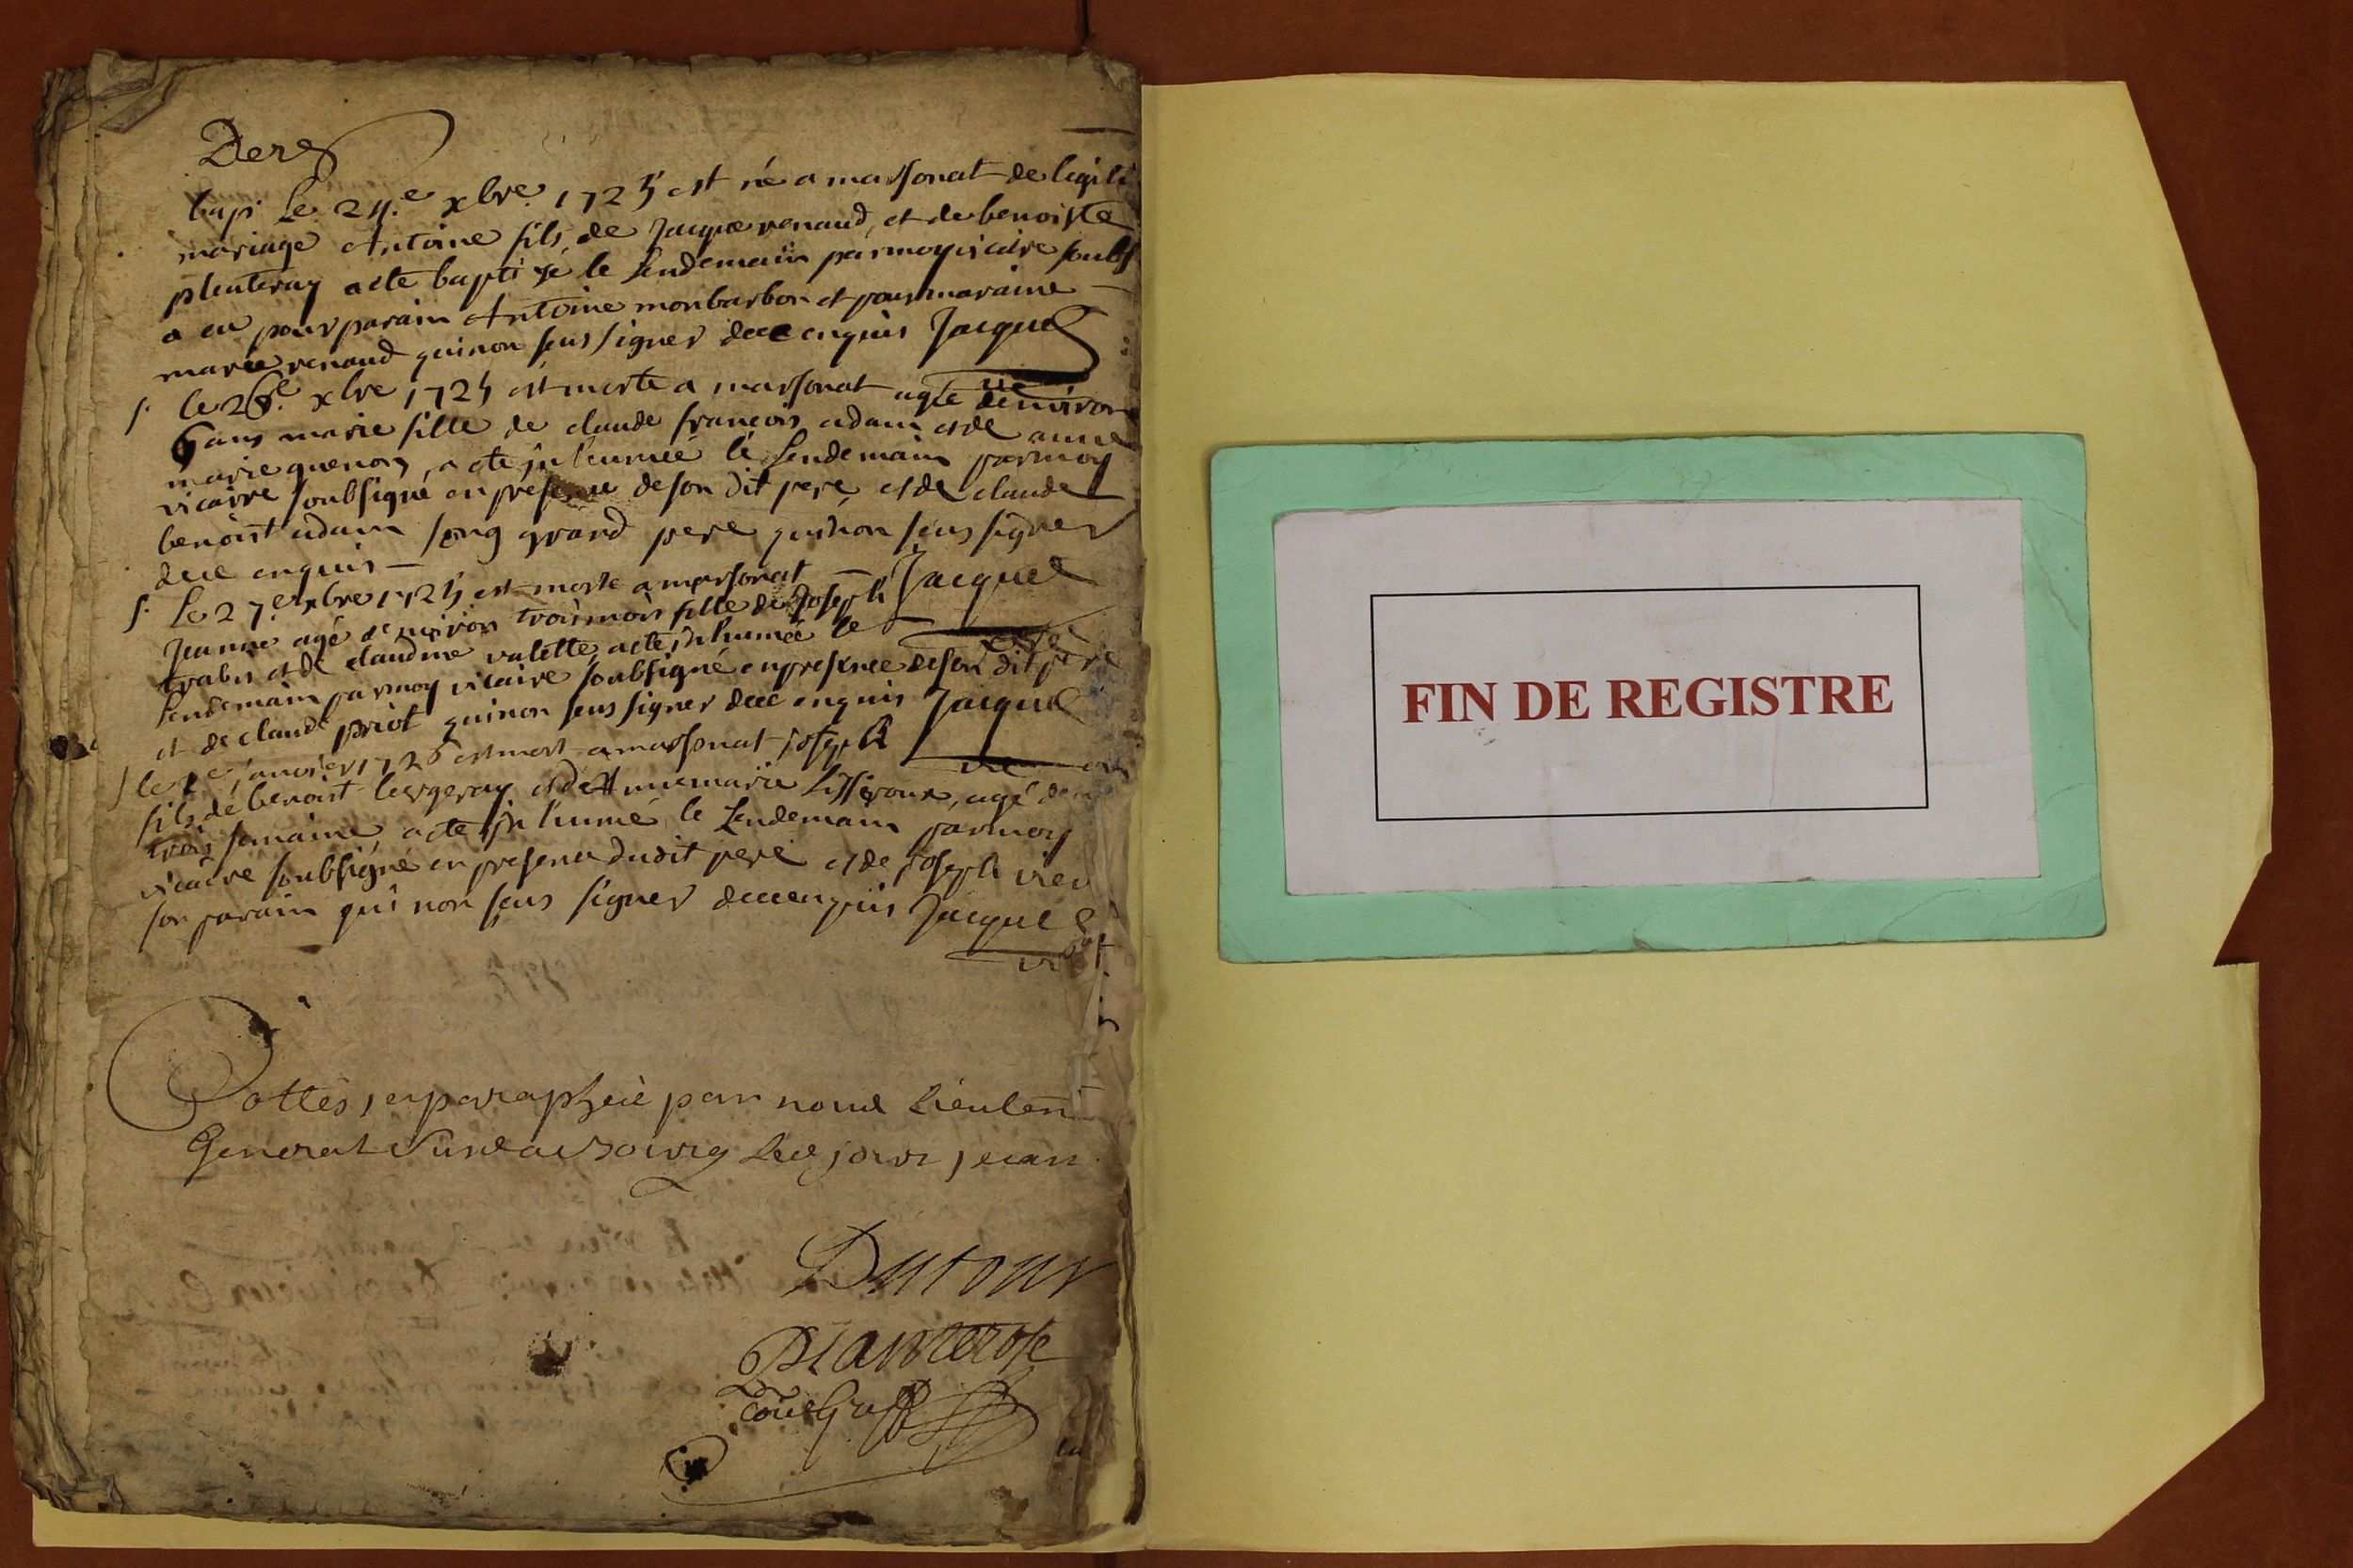 Der
bapt. Le 24.e xbre 1725 est né a marsonat de legiti
mariage Antoine fils de Jacque renaud, et de benoiste
a eté baptisé le Lendemain par moy vicaire soubs
a eu pour parain Antoine monbarbon et pour maraine
marie renaud qui non seus signer de ce enquis Jacquet
vic
s. le 26.e xbre 1725 est morte a marsonat agée denviron
6 ans marie fille de claude françois adam et de anne
marie guenon, a eté inhumée le Lendemain par moy
vicaire soubsigné en presence de son dit pere et de claude
benoist adam song grand pere qui non seus signer
de ce enquis Jacquet
s. Le 27.e xbre 1725 est morte a marsonat
Jeanne agé denviron trois mois fille de Joseph
et de claudine valette, a eté inhumée le
Lendemain par moy vicaire soubsigné en presence de son dit pere
et de claude priot qui non seus signer de ce enquis Jacquet
vic
s le janvier 1726 est mort a marsonat joseph
fils de benoist et de Anne marie agé de
trois semaine, a eté inhumé le Lendemain par moy
vicaire soubsigné en presence dudit pere et de joseph
son parain qui non seus signer de ce enquis Jacquet
vic
Cottés, et paraphé par nous Lieuten
General a Bourg Les jour, et an
Dutour
FIN DE REGISTRE